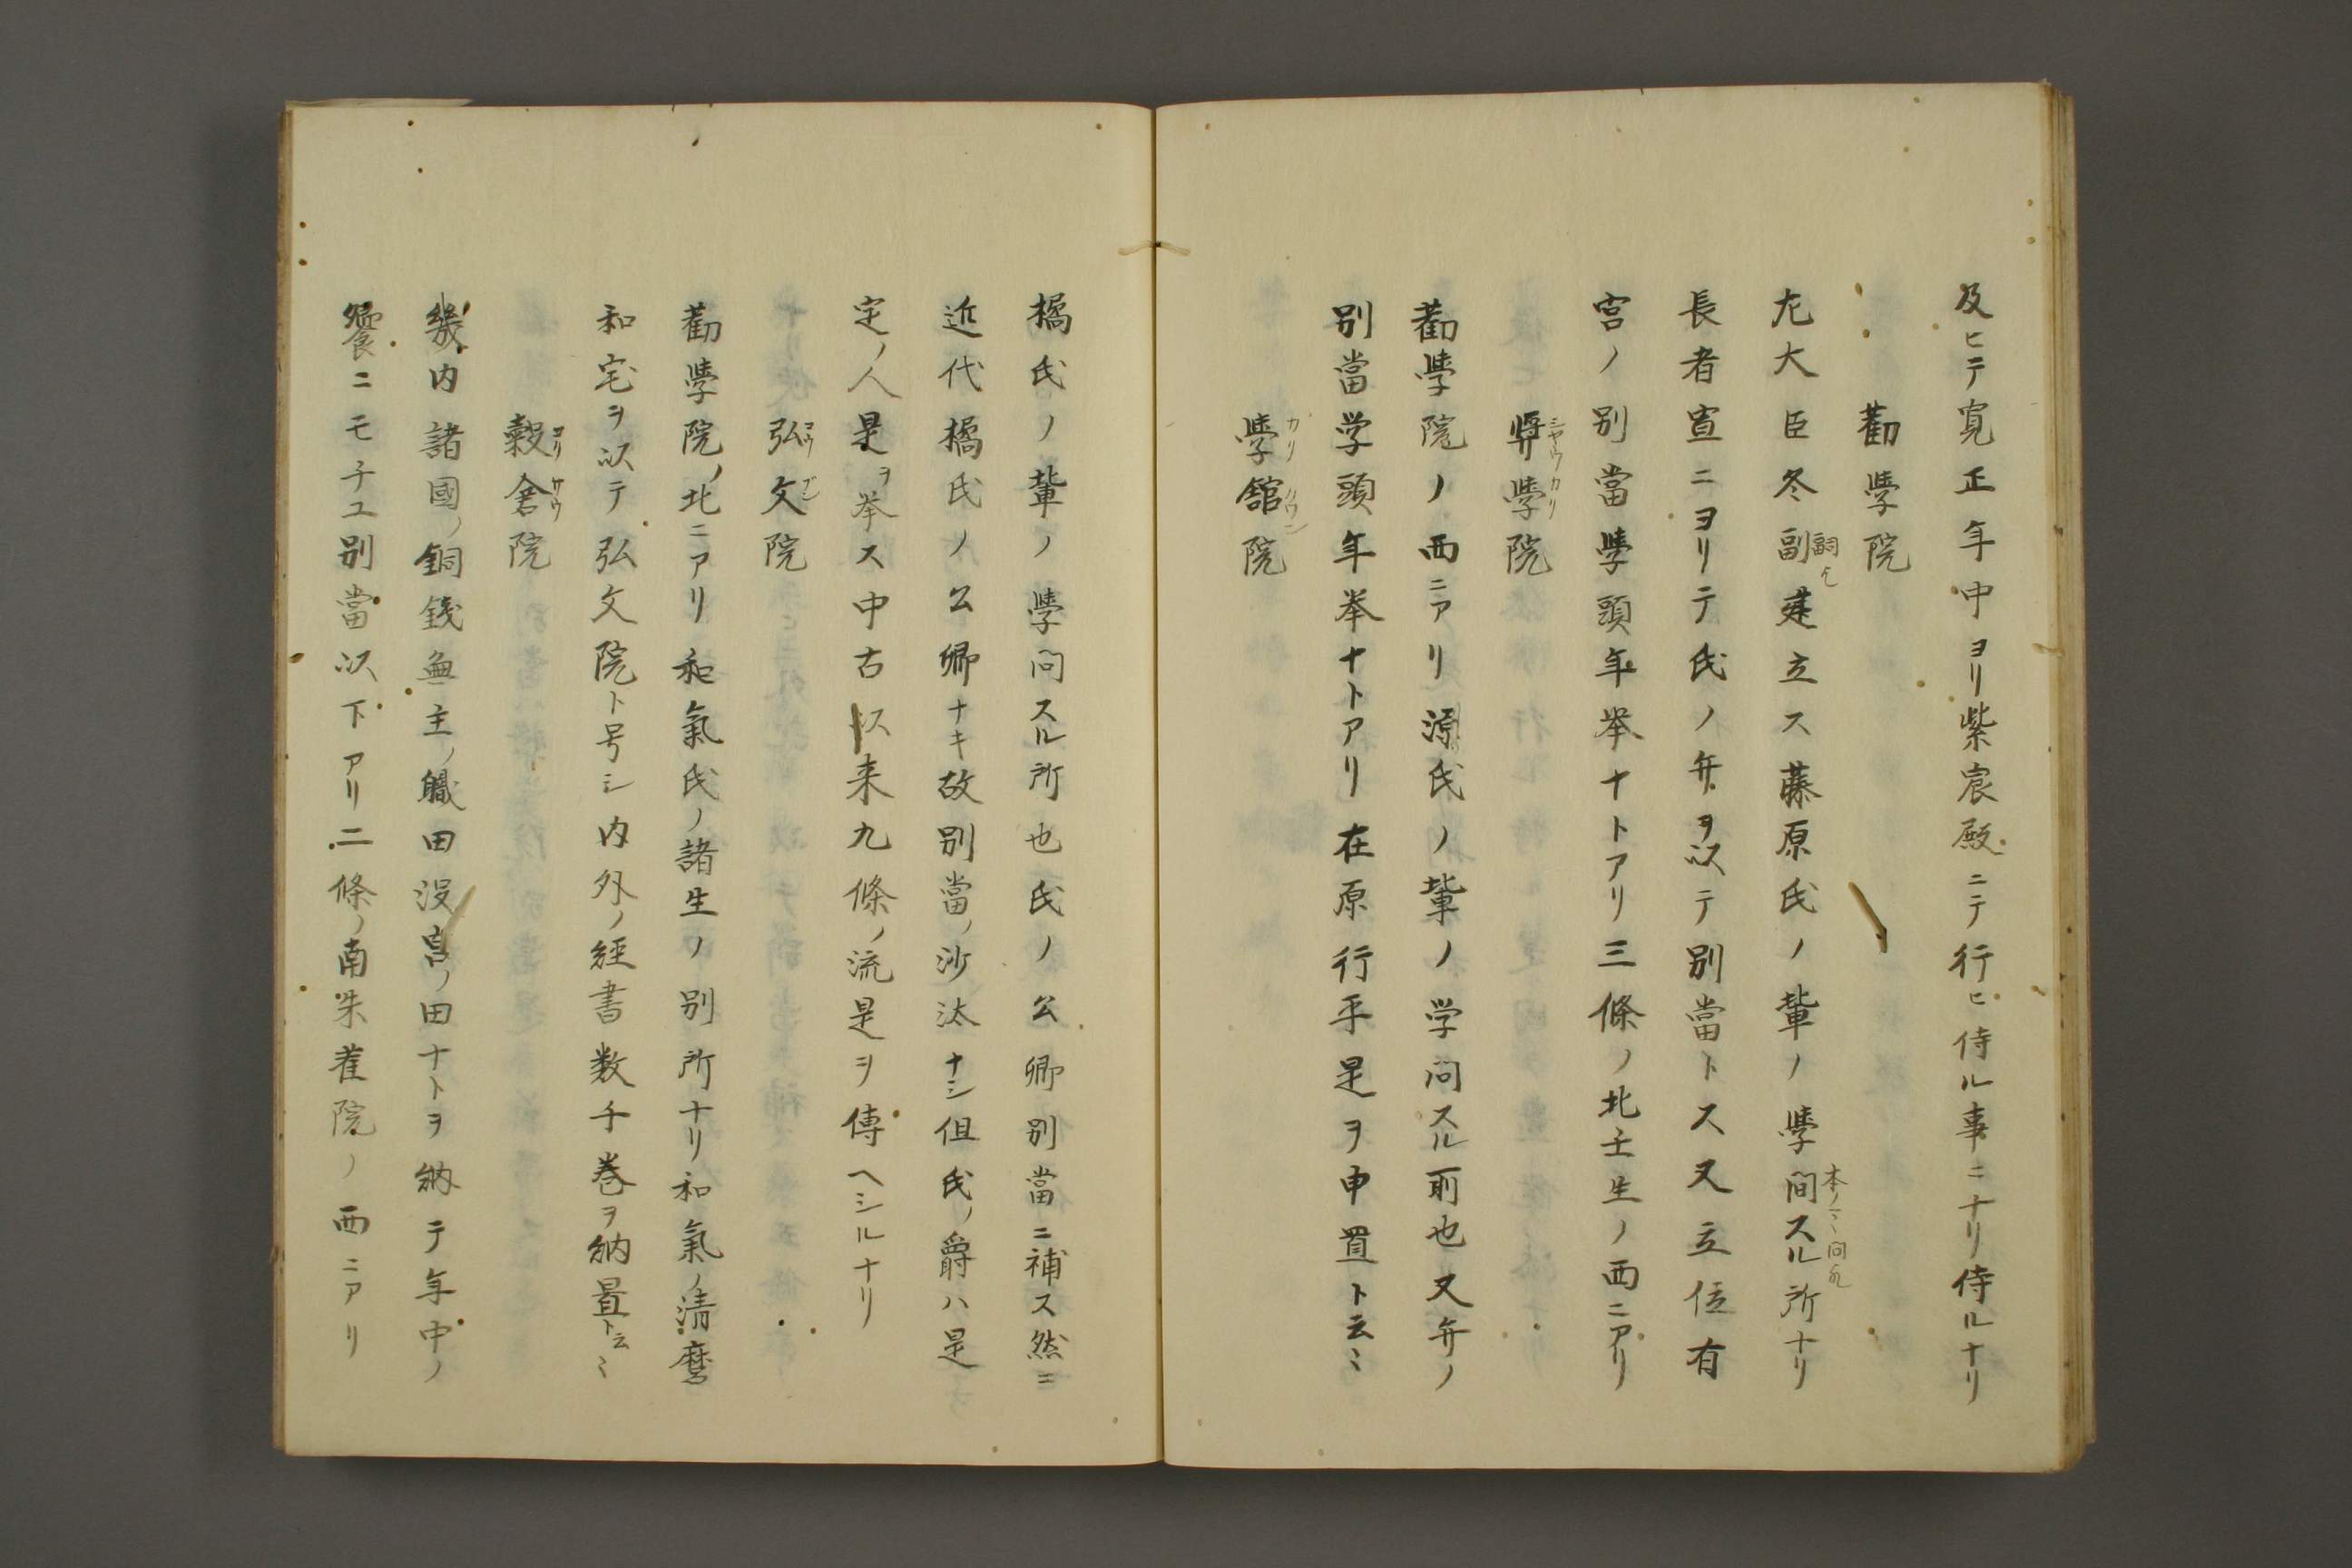 及ヒテ寛正年中ヨリ紫宸殿ニテ行ヒ侍ル事ニナリ侍ルナリ
勸學院
左大臣冬副建立ス藤原氏ノ輩ノ學間スル所ナリ
長者宣ニヨリテ氏ノ弁ヲ以テ別當トス又立位有
宮ノ別當學頭年挙ナトアリ三條ノ北壬生ノ西ニアリ
弉學院
勸學院ノ西ニアリ源氏ノ輩ノ学问スル所也又弁ノ
別當学頭年挙ナトアリ在原行平是ヲ申置ト云〻
學舘院
橘氏ノ輩ノ學问スル所也氏ノ公卿別當ニ補ス然ニ
近代橘氏ノ公卿ナキ故別當ノ沙汰ナシ但氏ノ爵ハ是
定ノ人是ヲ挙ス中古以来九條ノ流是ヲ傳ヘシルナリ
弘文院
勸學院ノ北ニアリ和氣氏ノ諸生ノ別所ナリ和氣ノ清麿
和宅ヲ以テ弘文院ト号シ内外ノ經書数千巻ヲ納置ト云〻
穀倉院
畿内諸國ノ銅錢無主ノ職田没官ノ田ナトヲ納テ年中ノ
饗ニモチユ別當以下アリ二條ノ南朱雀院ノ西ニアリ